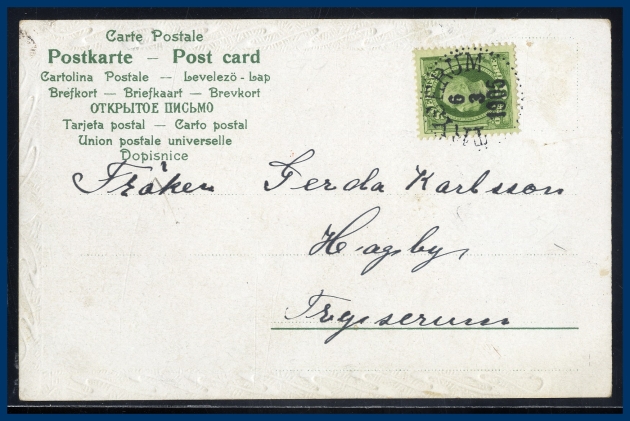 Carte Postale
Postkarte — Post card
Cartolina Postale -- Levelezö-Lap
Brefkort — Briefkaart — Brevkort
ОТКРЫТОЕ ПИСЬМО
Tarjeta postal — Carto postal
Union postale universelle
Dopisnice
6
3
1905
Fröken Gerda Karlsson
Hagsby
Tryserum